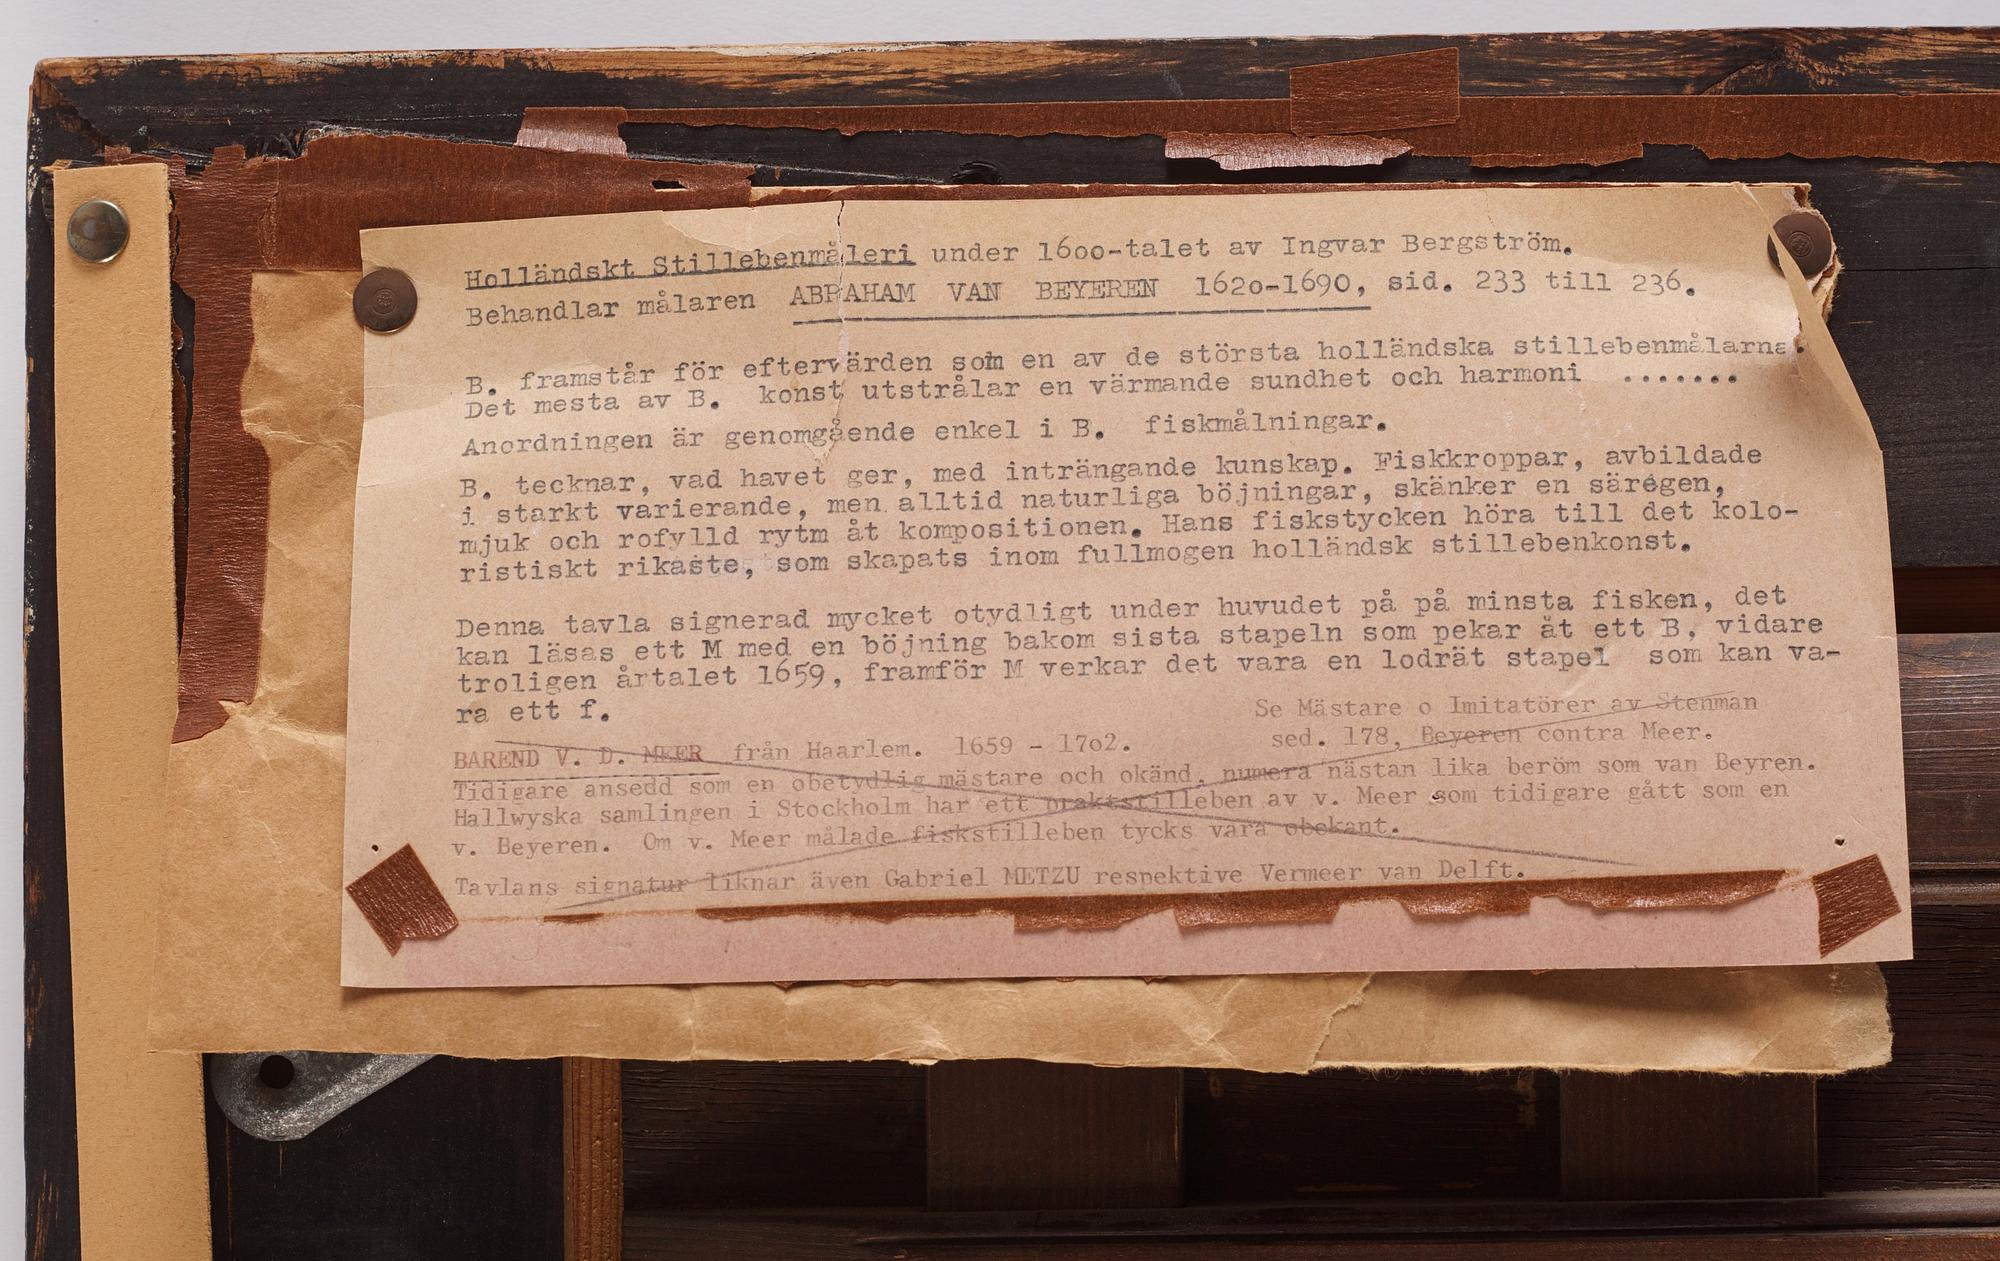 Holländskt Stillebenmåleri under 16oo-talet av Ingvar Bergström.
Behandlar målaren ABRAHAM VAN BEYEREN 162o-1690, sid. 233 till 236.
B. framstår för eftervärden som en av de största holländska stillebenmålarna.
Det mesta av B. konst utstrålar en värmande sundhet och harmoni .......
Anordningen är genomgående enkel i B. fiskmålningar.
B. tecknar, vad havet ger, med inträngande kunskap. Fiskkroppar, avbildade
i starkt varierande, men alltid naturliga böjningar, skänker en säregen,
mjuk och rofylld rytm åt kompositionen. Hans fiskstycken höra till det kolo-
ristiskt rikaste, som skapats inom fullmogen holländsk stillebenkonst.
Denna tavla signerad mycket otydligt under huvudet på på minsta fisken, det
kan läsas ett M med en böjning bakom sista stapeln som pekar åt ett B, vidare
troligen årtalet 1659, framför M verkar det vara en lodrät stapel som kan va-
ra ett f.
Se Mästare o Imitatörer av Stenman
sed. 178, Beyeren contra Meer.
BAREND V. D. MEER från Haarlem. 1659 - 17o2.
Tidigare ansedd som en obetydlig mästare och okänd, numera nästan lika beröm som van Beyren.
Hallwyska samlingen i Stockholm har ett praktstilleben av v. Meer som tidigare gått som en
v. Beyeren. Om v. Meer målade fiskstilleben tycks vara obekant.
Tavlans signatur liknar även Gabriel METZU respektive Vermeer van Delft.